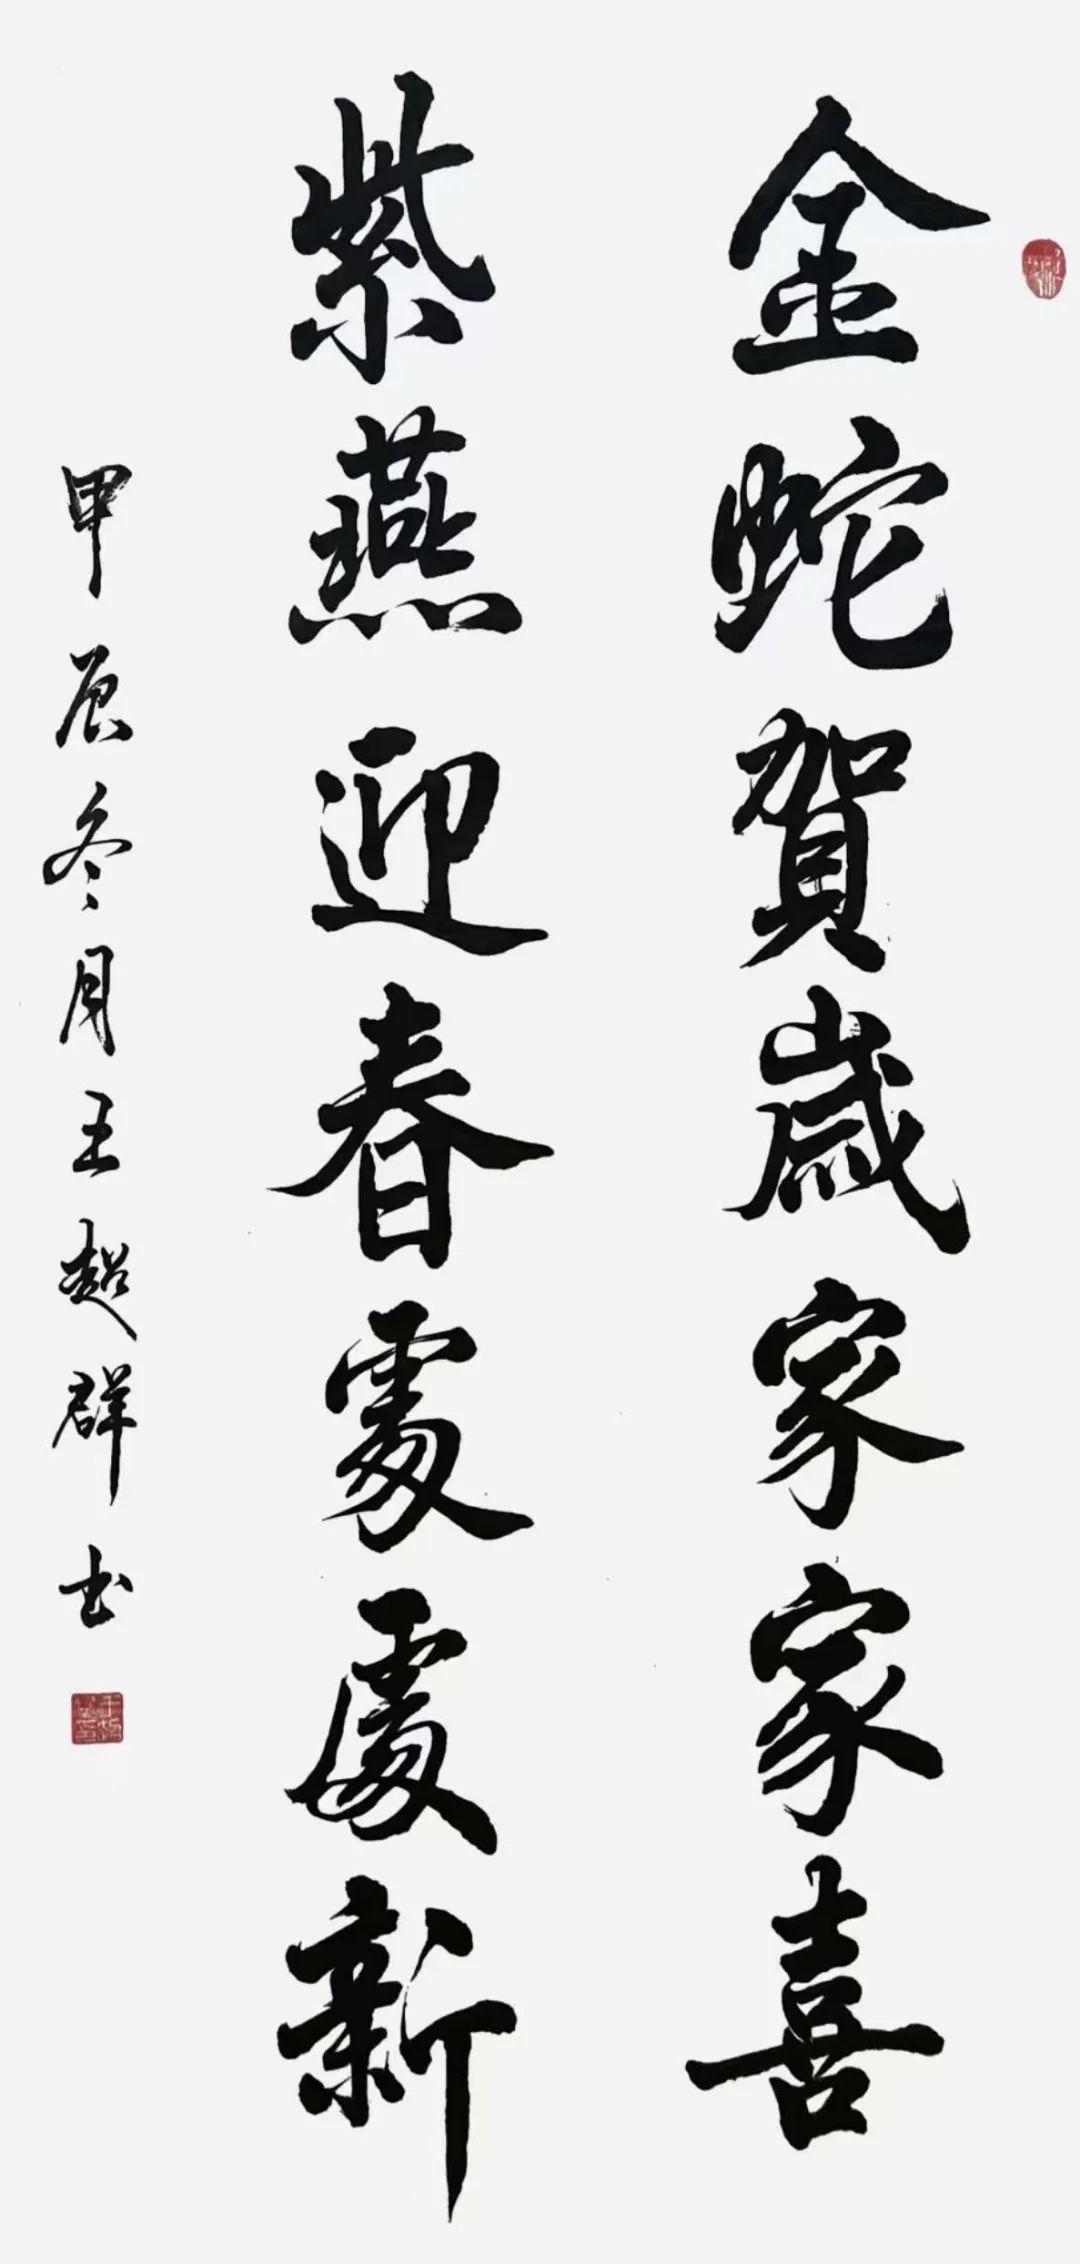 金蛇賀歲家家喜
紫燕迎春處處新
甲辰冬月王超群书